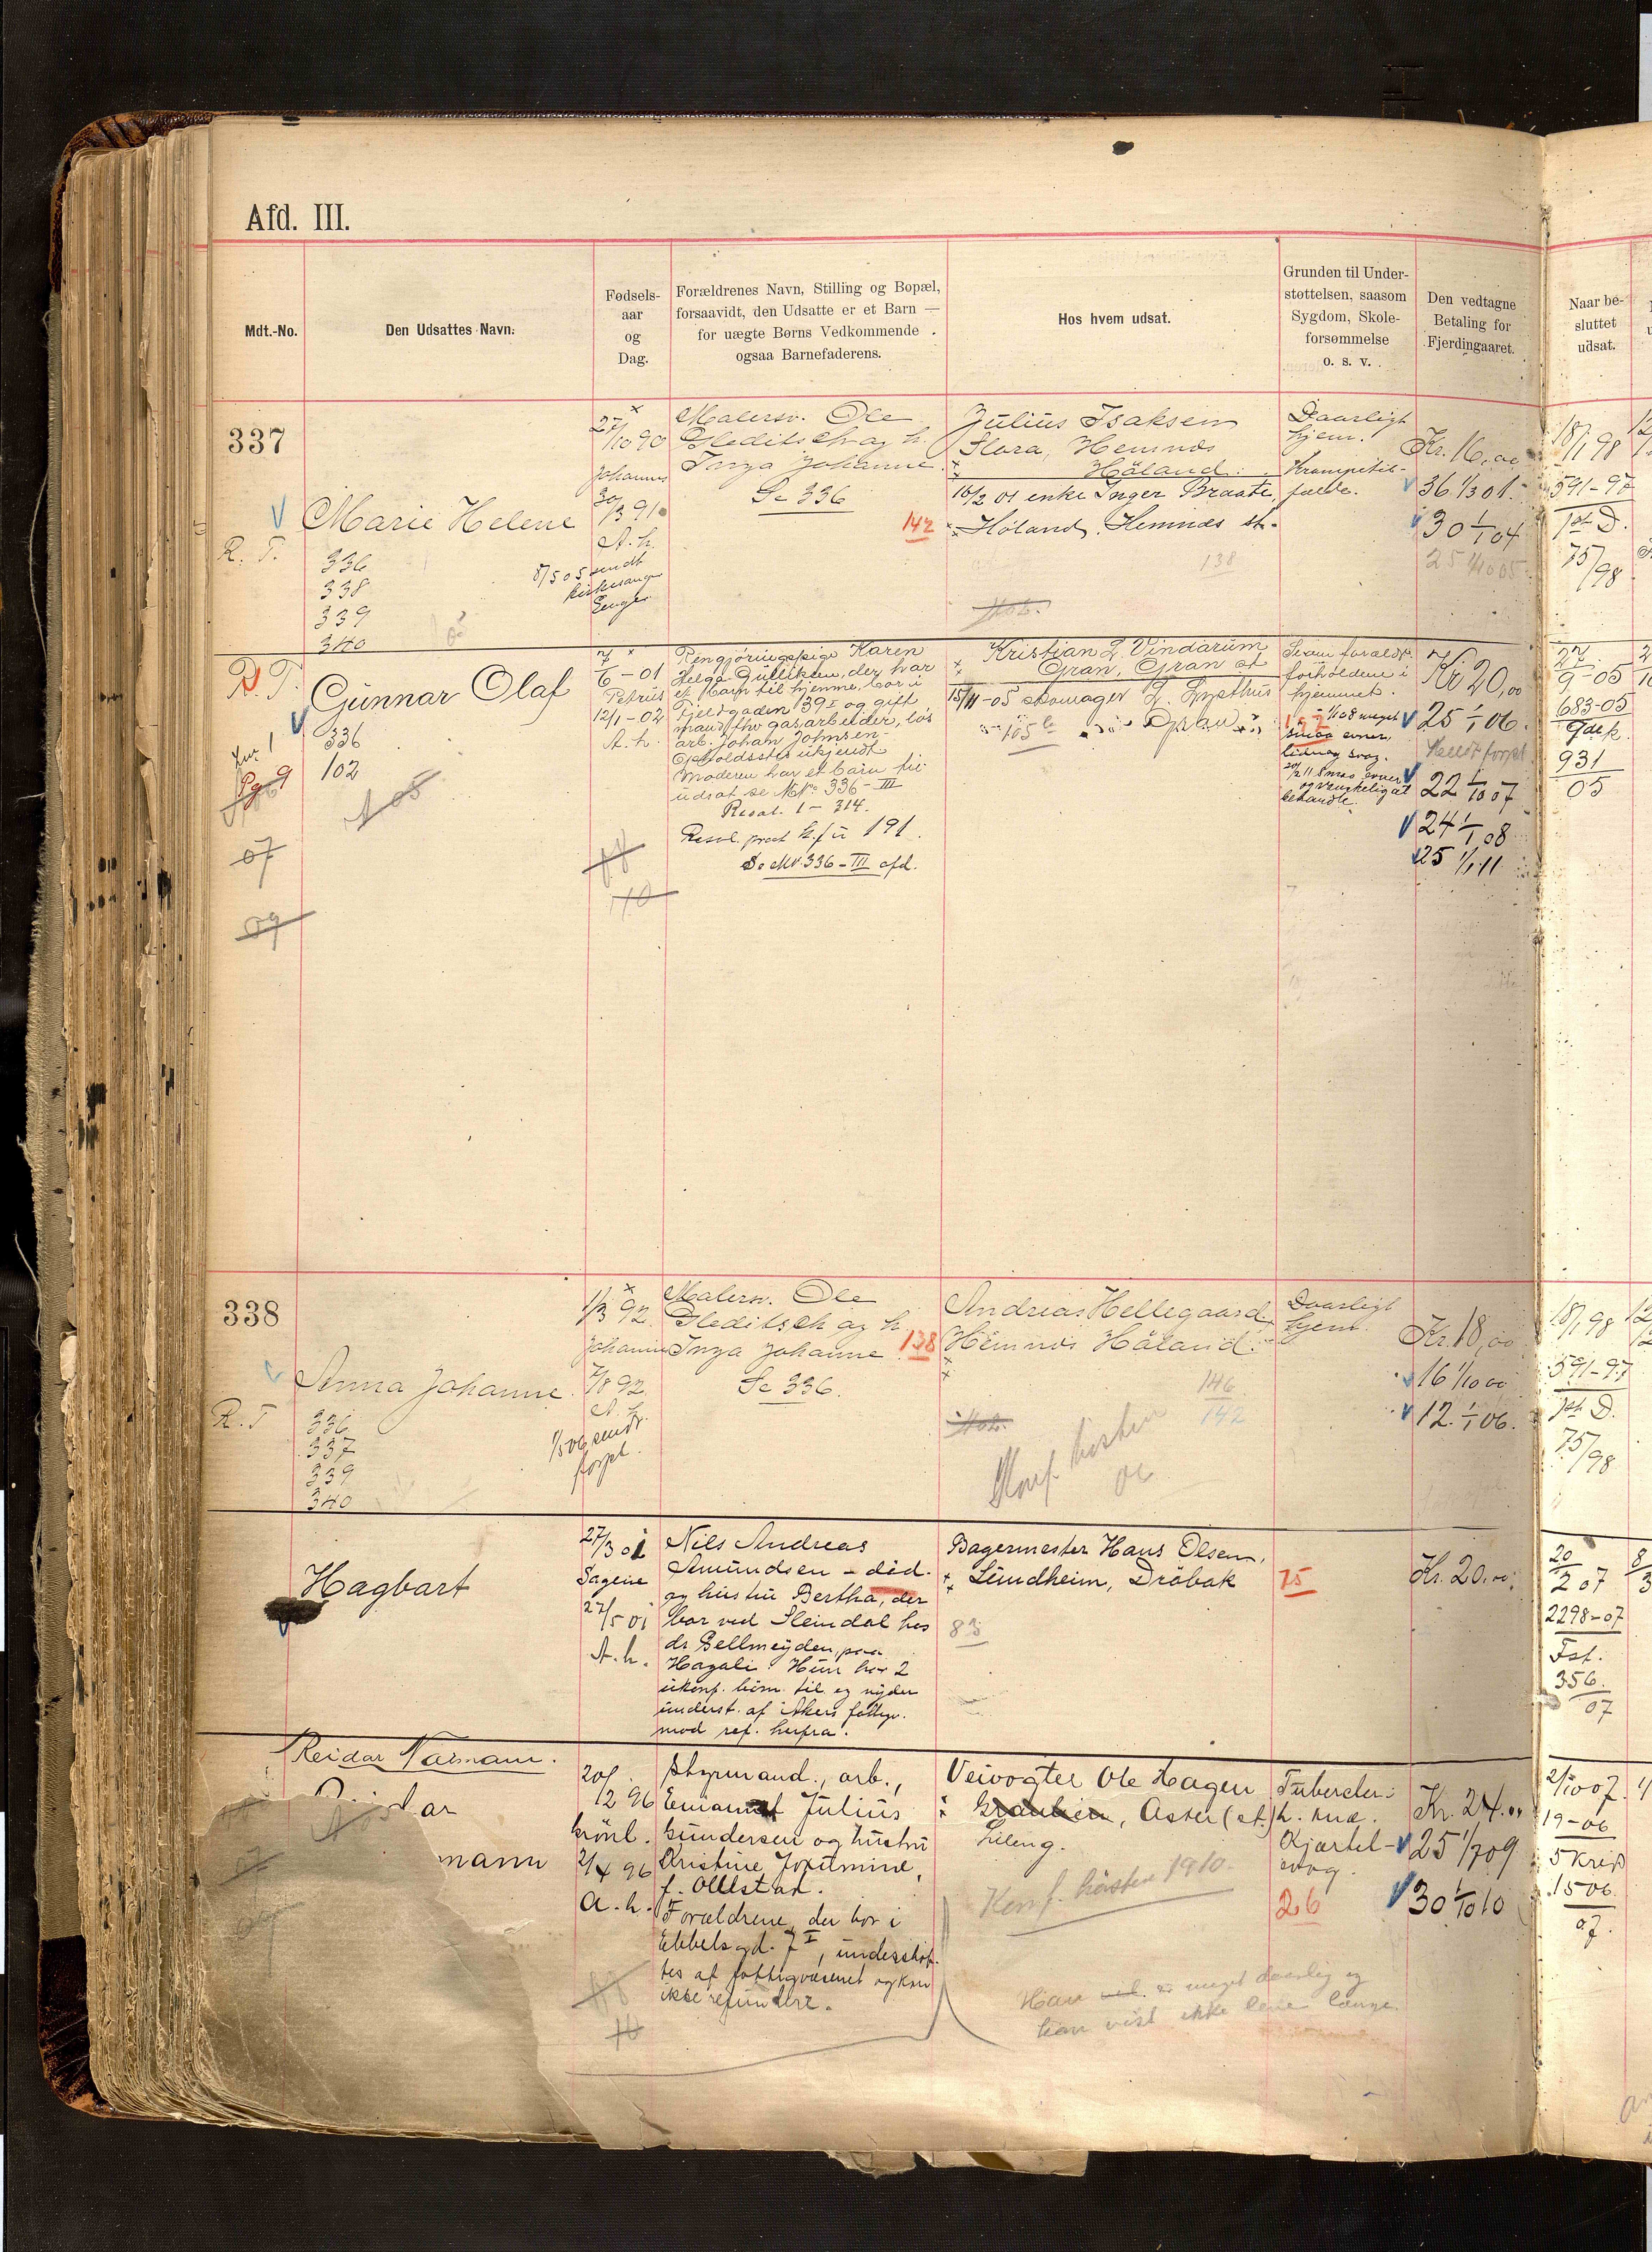 Afd. III.
Mdt.-No.
Den Udsattes Navn.
Fødsels-
aar
og
Dag.
Forældrenes Navn, Stilling og Bopæl,
forsaavidt, den Udsatte er et Barn —
for uægte Børns Vedkommende
ogsaa Barnefaderens.
Hos hvem udsat.
Grunden til Under-
støttelsen, saasom
Sygdom, Skole-
forsømmelse
o. s. v.
Den vedtagne
Betaling for
Fjerdingaaret.
Naar be-
sluttet
udsat.
337
R. T.
Marie Helene
336
338
339
340
27/10 90
Johannes
30/3 91
A. h.
8/5 05 sendt
Malersv. Ole
Gleditsch og h.
Inga Johanne.
Se 336
142
Julius Isaksen
Flora, Hemnes
Høland
16/2 01 enke Inger Braate,
Høland. Hemnes st.
138
Daarligt
hjem.
Krampetil-
fælde.
Kr. 16,00
36 1/3 01
30 1/1 04
25 1/10 05
18/1 98
591-97
1ste D.
75/98
R. T.
Gunnar Olaf
336
102
Pg 9
07
09
7/6 - 01
Petrus
12/1 - 02
A. h.
Rengjøringspige Karen
Helga Gulliksen, der har
et barn til hjemme, bor i
Fjeldgaden 39 I og gift
mand, fhv gasarbeider, løs
arb. Johan Johnsen-
Opholdssted ukjendt
Moderen har et barn til
udsat se M.No. 336 - III
Resol. 1 - 314.
Resol. prot h/u 191.
Se MN 336 - III afd.
Kristian L. Vindarum
Gran, Gran st
15/11-05 skomager L. Lysthus
Gran
105
Svam forældr.
forholdene i
hjemmet.
1/1 08 meget
smaa evner,
behandle.
Kr 20,00
25 1/1 06.
22 1/10 07
24 1/1 08
25 1/1 11
27/9 - 05
683-05
931
05
338
R. T
Anna Johanne
336
337
339
340
1/3 92
Johannes
7/8 92
A. h.
1/5 06 sendt
forpl.
Malersv. Ole
Gleditsch og h
Inga Johanne
Se 336.
138
Andreas Hellegaard
Hemnes Høland
146
142
Konf. høsten
06
Daarligt
hjem
Kr. 18,00
16 1/10 00
12 1/1 06.
18/1 98
591-97
1ste D.
75/98
Hagbart
27/3 01
Sagene
27/5 01
A. h.
Nils Andreas
Amundsen - død.
og hustru Bertha, der
bor ved Steindal hos
dr Bellmeyden paa
Hagali. Hun har 2
ukonf. børn til og nyder
underst. af Akers fattigv.
mod ref. herfra.
Bagermester Hans Olsen,
Lundheim, Drøbak
83
75
Kr. 20,00
20/2 07
2298-07
Fst.
356
07
Reidar Normann.
mann
20/12 96
Grønl.
2/4 96
A. h.
Styrmand., arb.,
Emanuel Julius
Gundersen og hustru
Kristine Josefmine,
f. Ollestad.
Forældrene, der bor i
Ebbelsgd. 7 I, understøt-
tes af fattigvæsenet og kan
ikke refundere.
10
Veivogter Ole Hagen
Grankien, Asker (st.)
Lileng.
Konf. høsten 1910.
Han er meget daarlig og
kan vist ikke leve længe.
Tuberculer.
h. knæ.
Kjertel-
svag.
26
Kr. 24.00
25 1/7 09
30 1/10 10
2/10 07
19-06
5 Kreds
15 06
07.